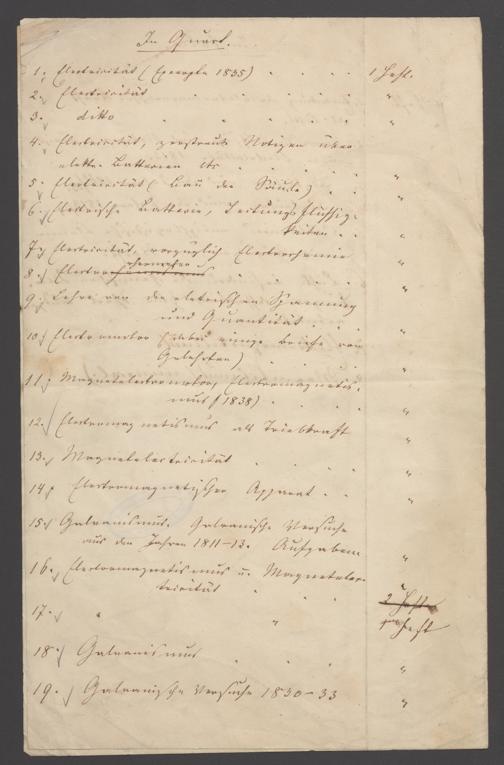 In Quart.
1. Electricität (Exempla 1835) . . . . 1 Heft.
2. Electricität . . . . "
3. ditto . . . . "
4. Electricität, zerstreute Notizen über
elektr. Batterien etc . . . "
5. Electricität (Bau der Säule) . . "
6. Elektrische Batterie, Leitungsflüssig-
keiten . . "
7. Electricität, vorzüglich Electrochemie "
8. Electro . . . "
9. Lehre von der elektrischen Spannung
und Quantität . . . "
10. Electromotor ( einige Briefe von
Gelehrten) . . . "
11. Magnetelectromotor, Electromagnetis-
mus (1838) . . . "
12. Electromagnetismus als Triebkraft "
13. Magnetelectricität . . . "
14. Electromagnetischer Apparat . . "
15. Galvanismus. Galvanische Versuche
aus den Jahren 1811-13. Aufgaben "
16. Electromagnetismus u. Magnetelec-
tricität . . . "
17. " " 1 Heft
18. Galvanismus . . . "
19. Galvanische Versuche 1830-33 "